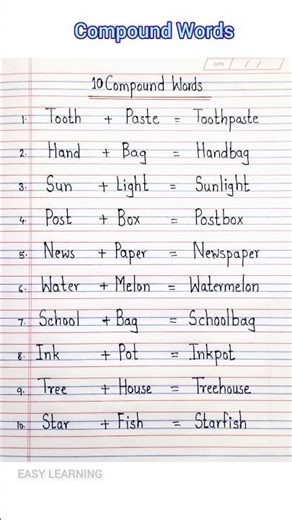 Compound Words
DATE / /
10 Compound Words
1. Tooth + Paste = Toothpaste
2. Hand + Bag = Handbag
3. Sun + Light = Sunlight
4. Post + Box = Postbox
5. News + Paper = Newspaper
6. Water + Melon = Watermelon
7. School + Bag = Schoolbag
8. Ink + Pot = Inkpot
9. Tree + House = Treehouse
10. Star + Fish = Starfish
EASY LEARNING